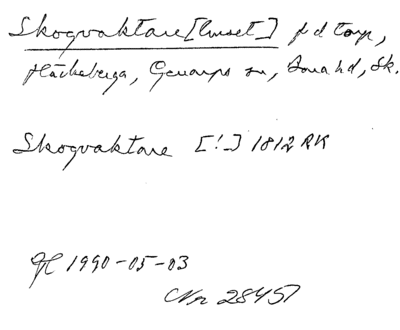 Skogvaktare[huset] f d torp,
Häckeberga, Genarps sn, Bara hd, Sk.
Skogvaktare [!] 1812 RK
GH 1990-05-03
Nr 28457